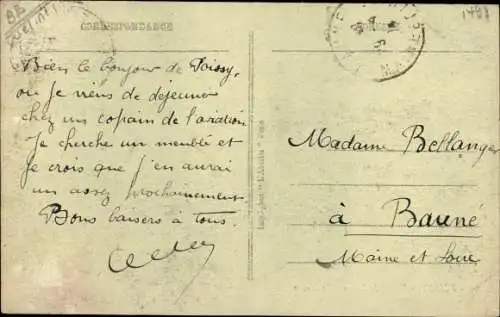 CORRESPONDANCE
Bien le bonjour de Poissy,
où je viens de déjeuner
chez un copain de l'aviation
Je cherche un meublé et
je crois que j'en aurai
un assez prochainement
Bons baisers à tous.
Madame Bellanger
à Bauné
Maine et Loire